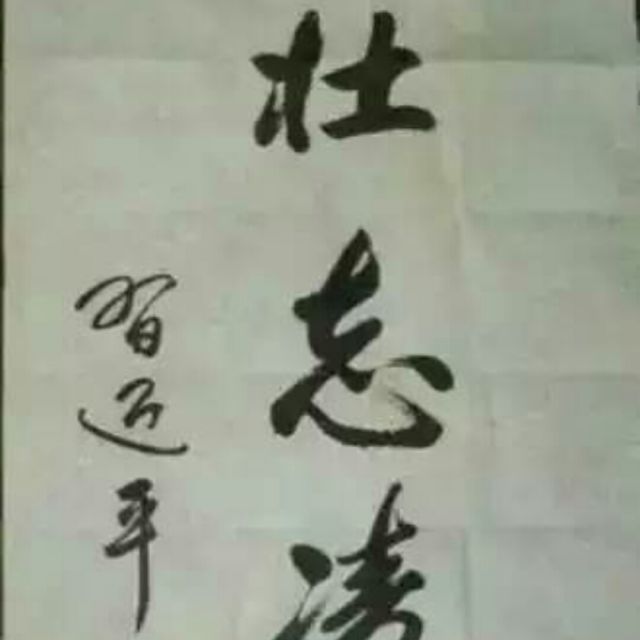 壮志凌
习近平